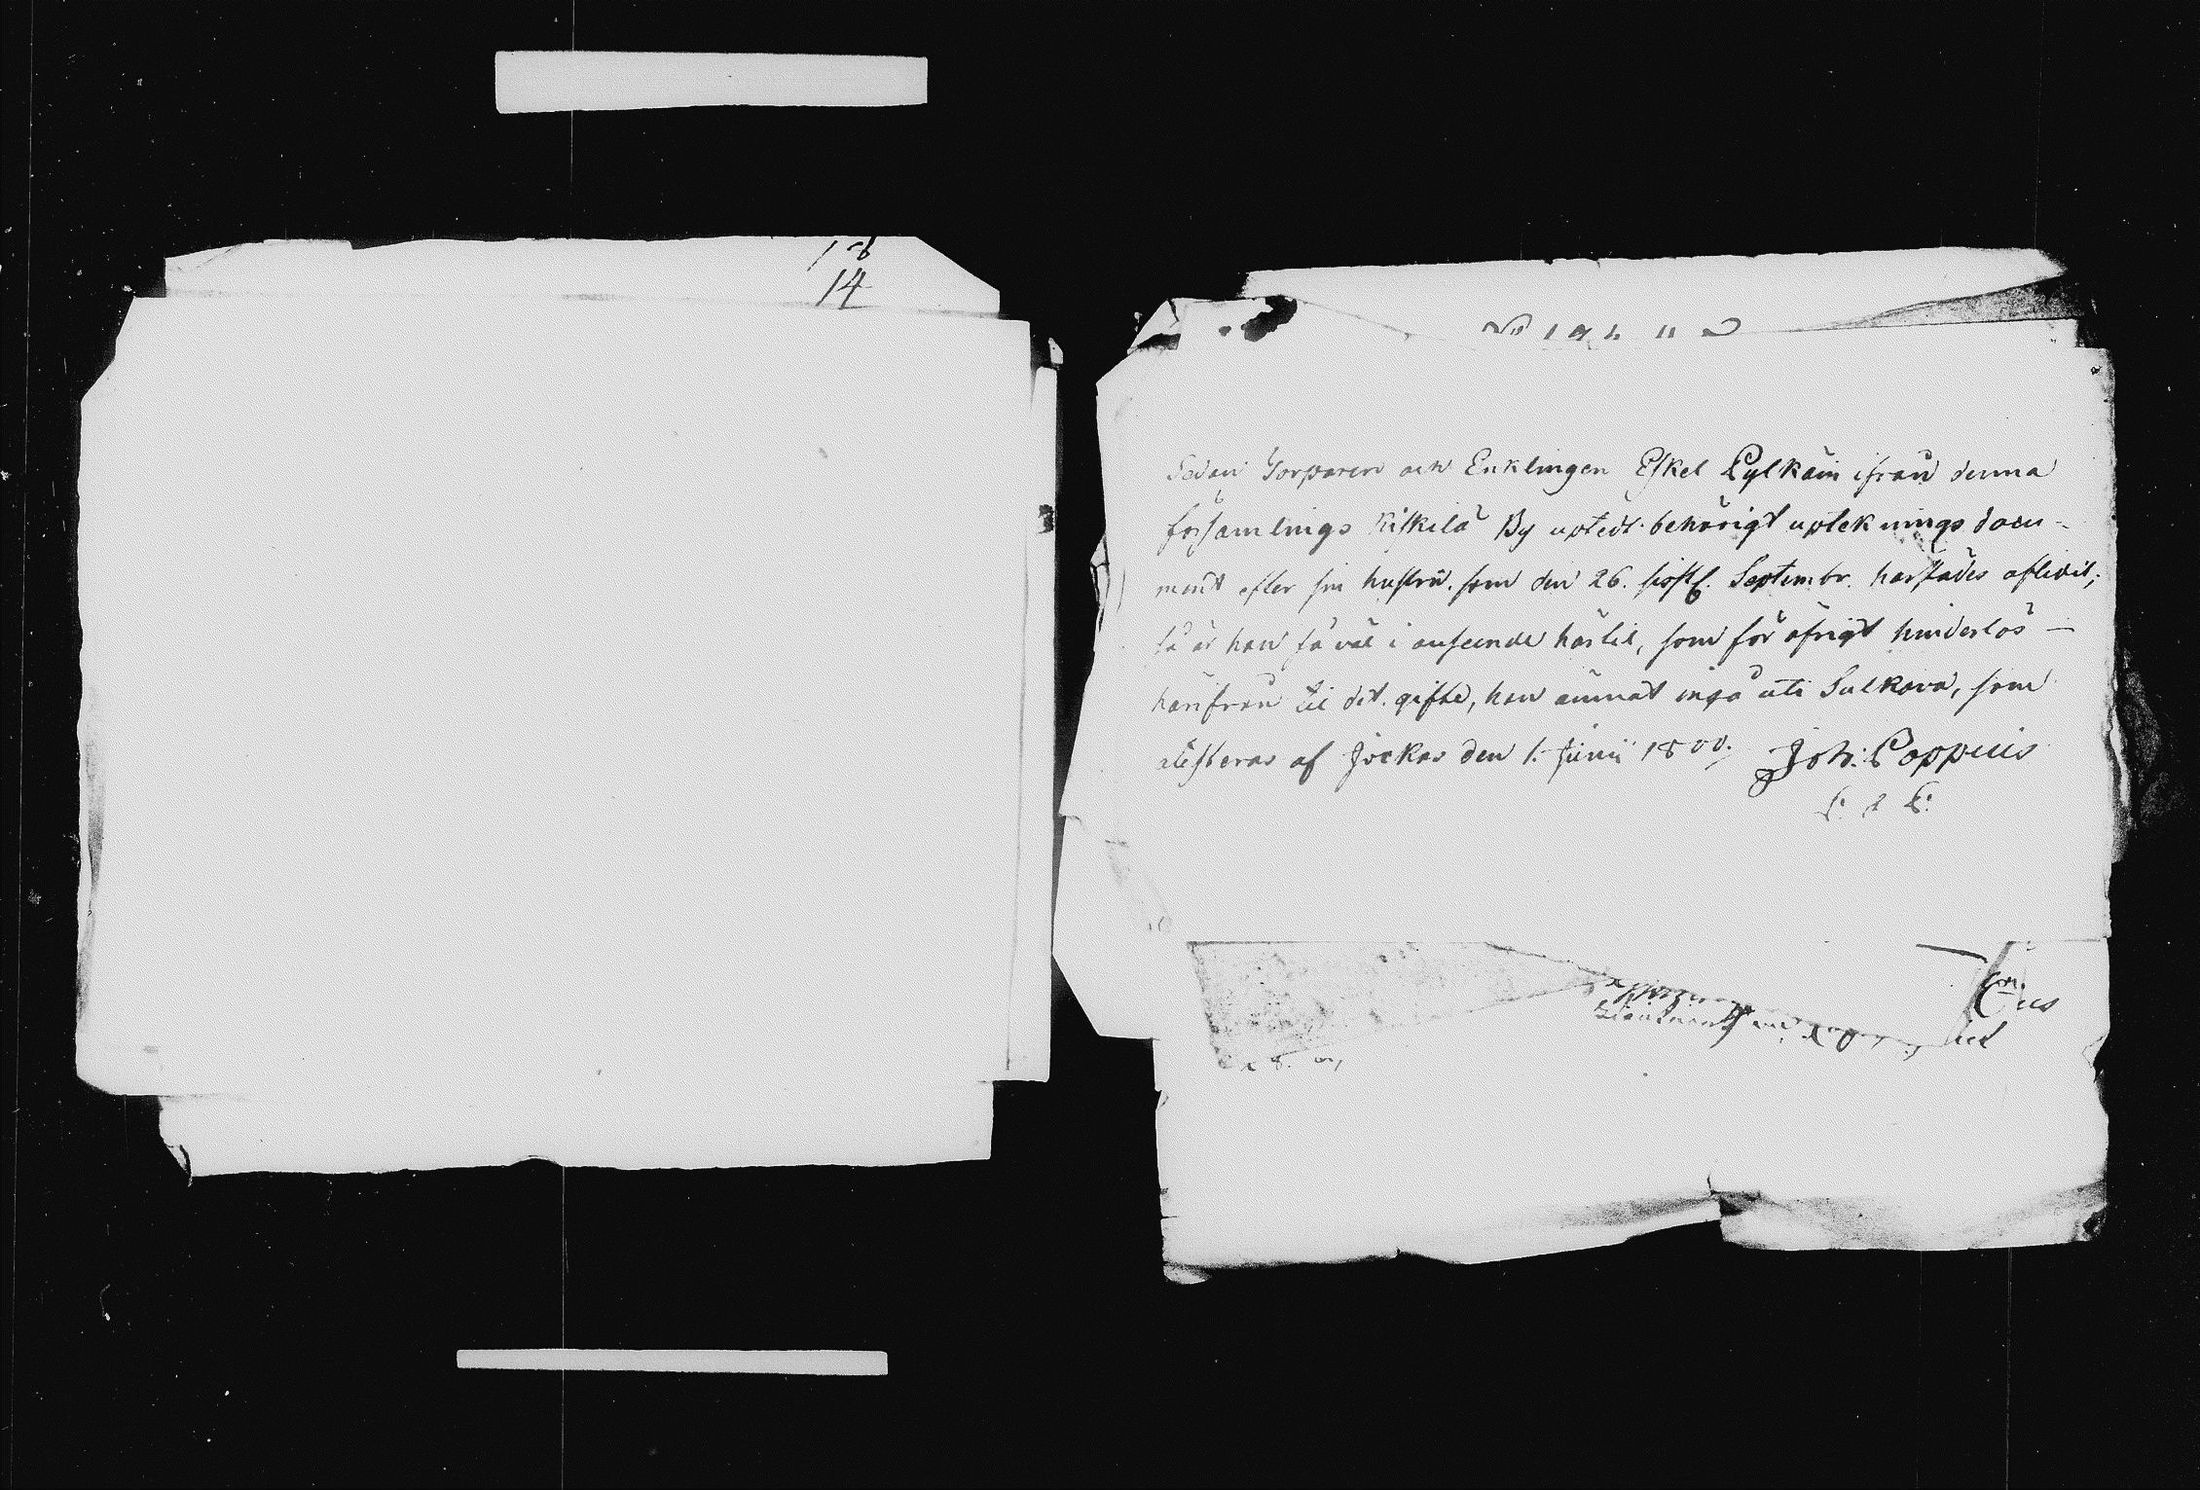 14
Sedan Torparen och Enklingen Eskel Pylkäin ifrån denna
församlings Kiskilä By uptedt behörigt uptekningsdocu-
ment efter sin hustru, som den 26. sistl. Septembr. härstädes aflidit;
så är han så väl i anseende härtil, som för öfrigt hinderlös —
härifrån til det gifte, han ämnat ingå uti Sulkava, som
attesteras af Jockas den 1. Junii 1800.
Joh: Coppuis